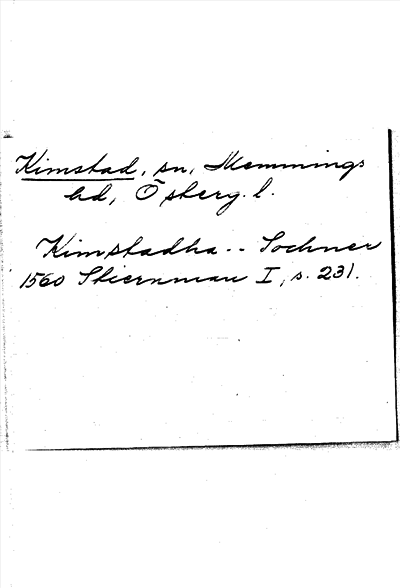 Kimstad, sn, Memmings
hd, Östergl.
Kimstadha -- Sochner
1560 Stiernman I, s. 231.